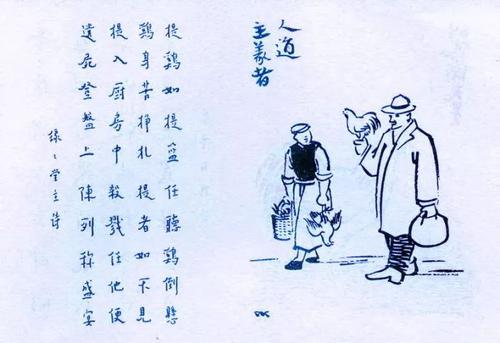 人道
主義者
提鷄如提籃任聽鷄倒懸
鷄身苦掙扎提者如不見
提入厨房中殺戮任他便
遺屍登盤上陳列称盛宴
緣〻堂主詩